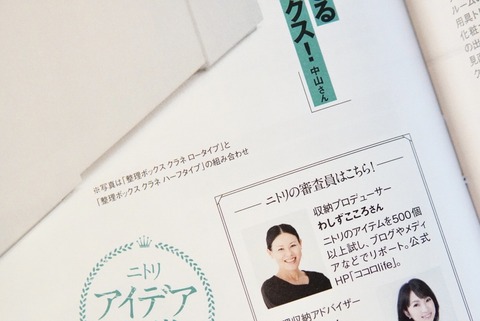 る
クス！
中山さん
ルーム
用具ト
化粧
の出
見
※写真は「整理ボックス クラネ ロータイプ」と
「整理ボックス クラネ ハーフタイプ」の組み合わせ
ニトリの審査員はこちら！
収納プロデューサー
わしずこころさん
ニトリのアイテムを500個
以上試し、ブログやメディ
アなどでリポート。公式
HP「ココロlife」。
ニトリ
アイデア
収納アドバイザー